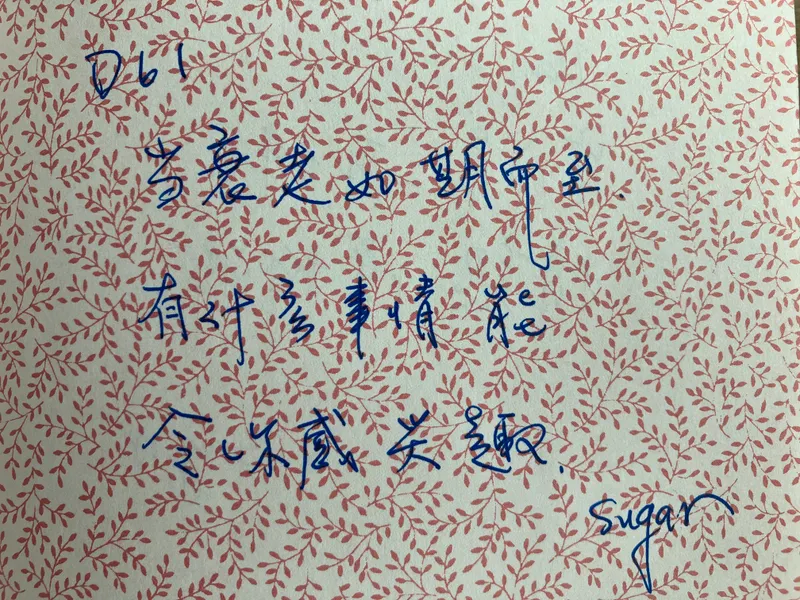 D61
当衰老如期而至.
有什么事情能
令你感兴趣.
Sugar